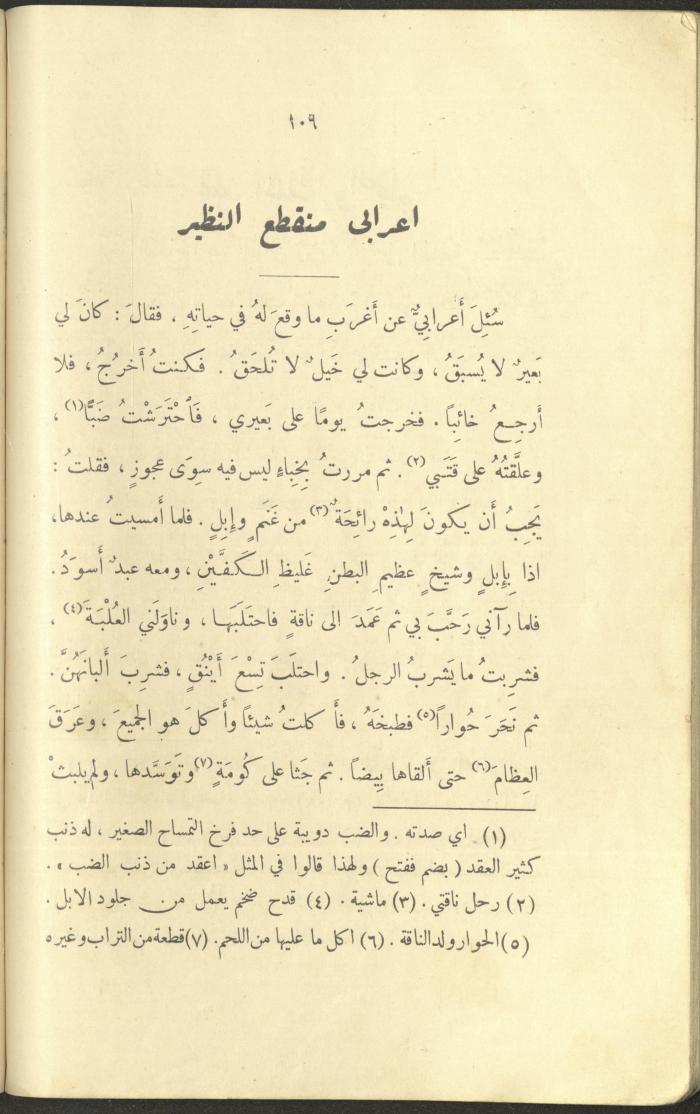 ١٠٦
اعرابى منقطع النظير
سُئِلَ أَعرابِيٌّ عن أَغرَبِ ما وقعَ لهُ في حياتِهِ ، فقالَ : كانَ لي
بَعيرٌ لا يُسبَقُ ، وكانت لي خَيلٌ لا تُلحَقُ . فكنتُ أَخرُجُ ، فلا
أَرجِعُ خائِبًا . فخرجتُ يومًا على بَعيري ، فَاحْتَرَشْتُ ضَبًّا(١) ،
وعلَّقتُهُ على قَتَبي(٢) . ثم مررتُ بِخِباءٍ ليس فيه سِوَى عجوزٍ ، فقلتُ :
يَجِبُ أَن يكونَ لِهٰذِهْ رائِحَةٌ(٣) من غَنَمٍ وإِبِلٍ . فلما أَمسيتُ عندها،
اذا بِإِبلٍ وشيخٍ عظيمِ البطنِ غَليظِ الكَفَّيْنِ ، ومعه عبدٌ أَسوَدُ .
فلما رآني رَحَّبَ بي ثم عَمَدَ الى ناقةٍ فاحتَلَبَها ، وناوَلَني العُلْبَةَ(٤) ،
فشرِبتُ ما يَشربُ الرجلُ . واحتلَبَ تِسْعَ أَيْنُقٍ ، فشرِبَ أَلبانَهُنَّ .
ثم نَحَرَ حُواراً(٥) فطبخَهُ ، فأَكلتُ شيئًا وأَكلَ هو الجميعَ ، وعَرَقَ
العِظامَ(٦) حتى أَلقاها بِيضًا . ثم جَثا على كُومَةٍ(٧) وتَوَسَّدها ، ولم يلبثْ
(١) اي صدته . والضب دويبة على حد فرخ التمساح الصغير ، له ذنب
كثير العقد ( بضم ففتح ) ولهذا قالوا في المثل « اعقد من ذنب الضب » .
(٢) رحل ناقتي . (٣) ماشية . (٤) قدح ضخم يعمل من جلود الابل .
(٥) الحوار ولد الناقة . (٦) اكل ما عليها من اللحم. (٧) قطعة من التراب وغيره